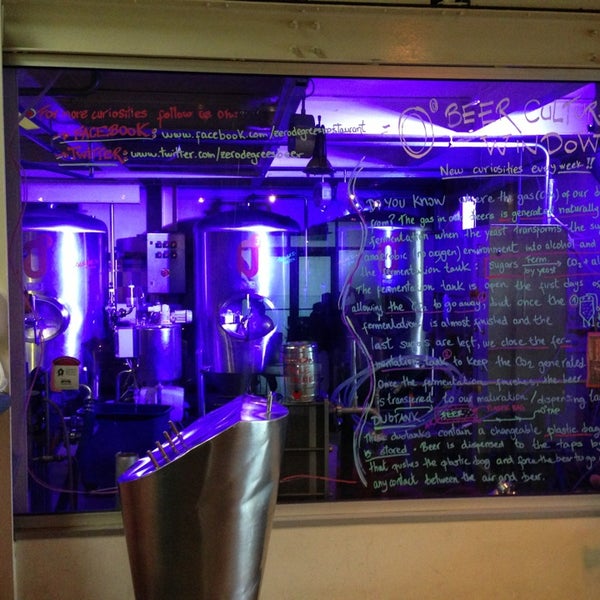 For more curiosities follow us on:
FACEBOOK: www.facebook.com/zerodegreesrestaurant
TWITTER: www.twitter.com/zerodegreesbeer
0° BEER CULTUR
WINDOW
New curiosities every week!!
Do you know where the gas (CO2) of our
from? The gas in our beers is generated naturally
fermentation when the yeast transforms the su
anaerobic (no oxygen) environment into alcohol and
the fermentation tank: Sugars Ferm. by yeast CO2 + al
The fermentation tank is open the first days of
allowing the to go away, but once the
fermentation is almost finished and the
last sugars are left, we close the fer-
mentation tank to keep the CO2 generated
Once the fermentation finishes, the beer
is transfered to our maturation / dispensing ta
DUOTANK BEER PLASTIC BAG TAP
These duotanks contain a changeable plastic bag
is stored. Beer is dispensed to the taps by
that pushes the plastic bag and force the beer to go
any contact between the air and beer.